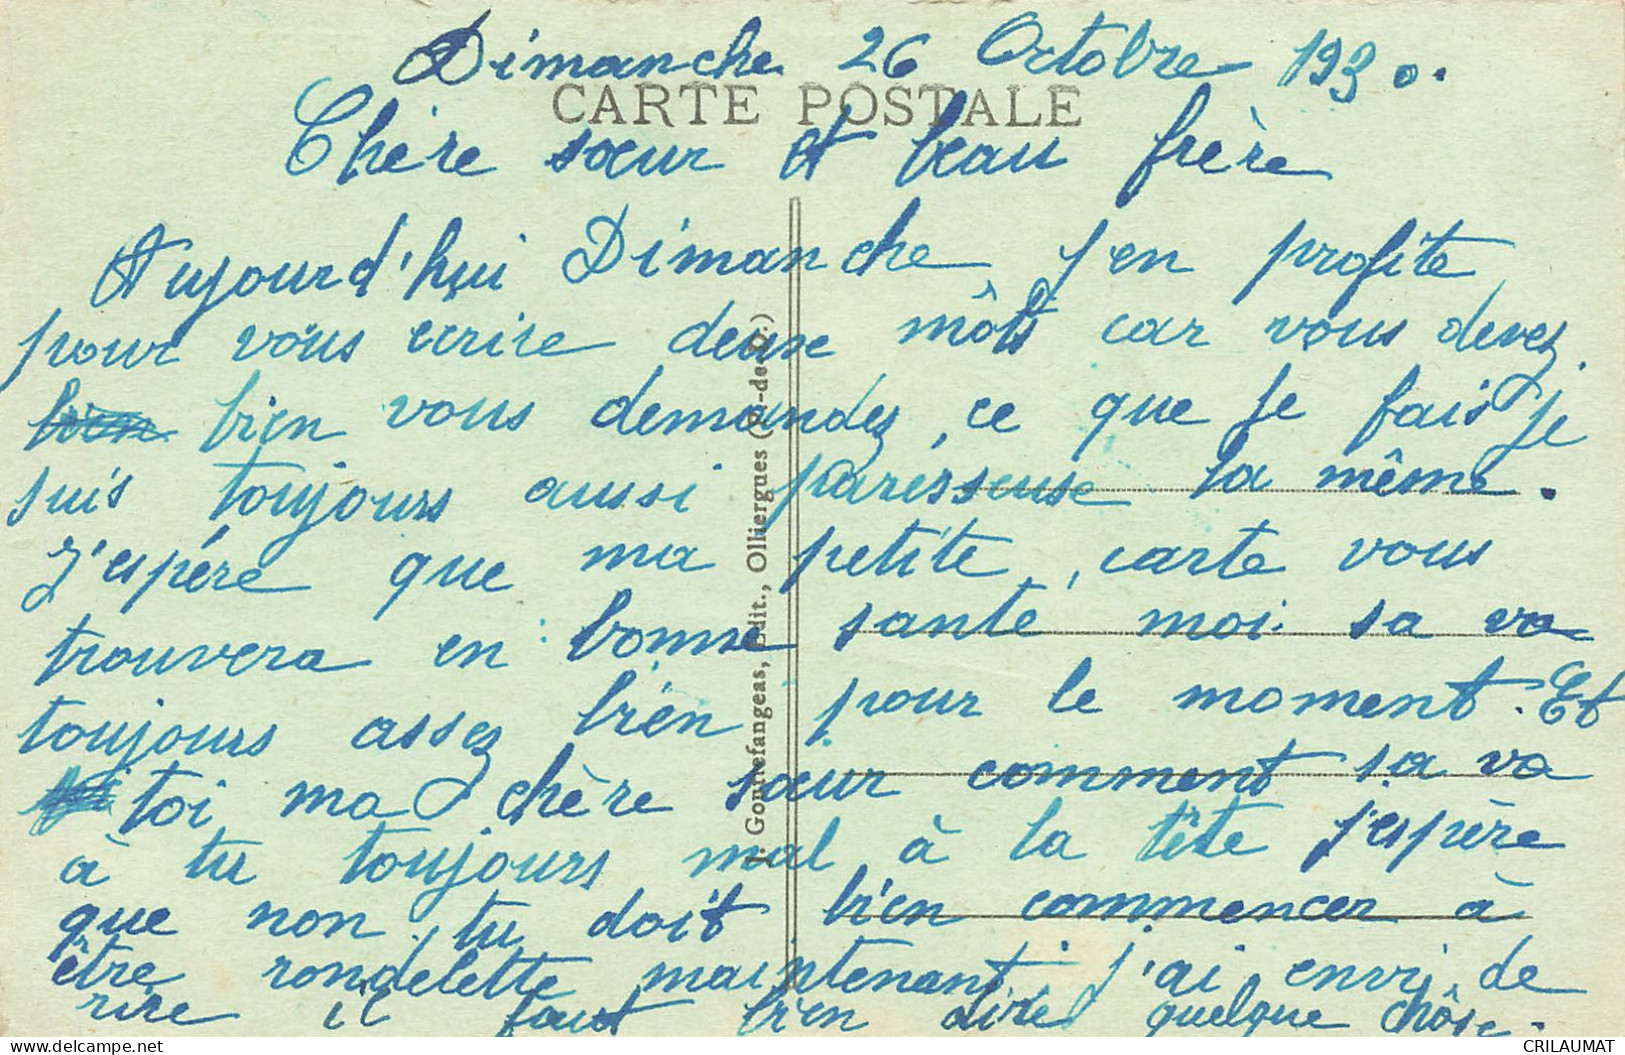 Dimanche 26 Octobre 1930.
CARTE POSTALE
Chère sœur et beau frère
Aujourd'hui Dimanche j'en profite
pour vous ecrire deux môts car vous devez
bien bien vous demandez, ce que je fais je
suis toujours aussi parèsseuse la même.
J'espére que ma petite carte vous
trouvera en bonne santé moi sa va
toujours assez bien pour le moment. Et
toi ma chère sœur comment sa va
à tu toujours mal à la tête j'espère
que non, tu doit bien commencer à
être rondelette maintenant j'ai envi de
rire il faut bien dire quelque chôse.
J. Gouttefangeas, Edit., Olliergues (P.-de-D.)
CRILAUMAT